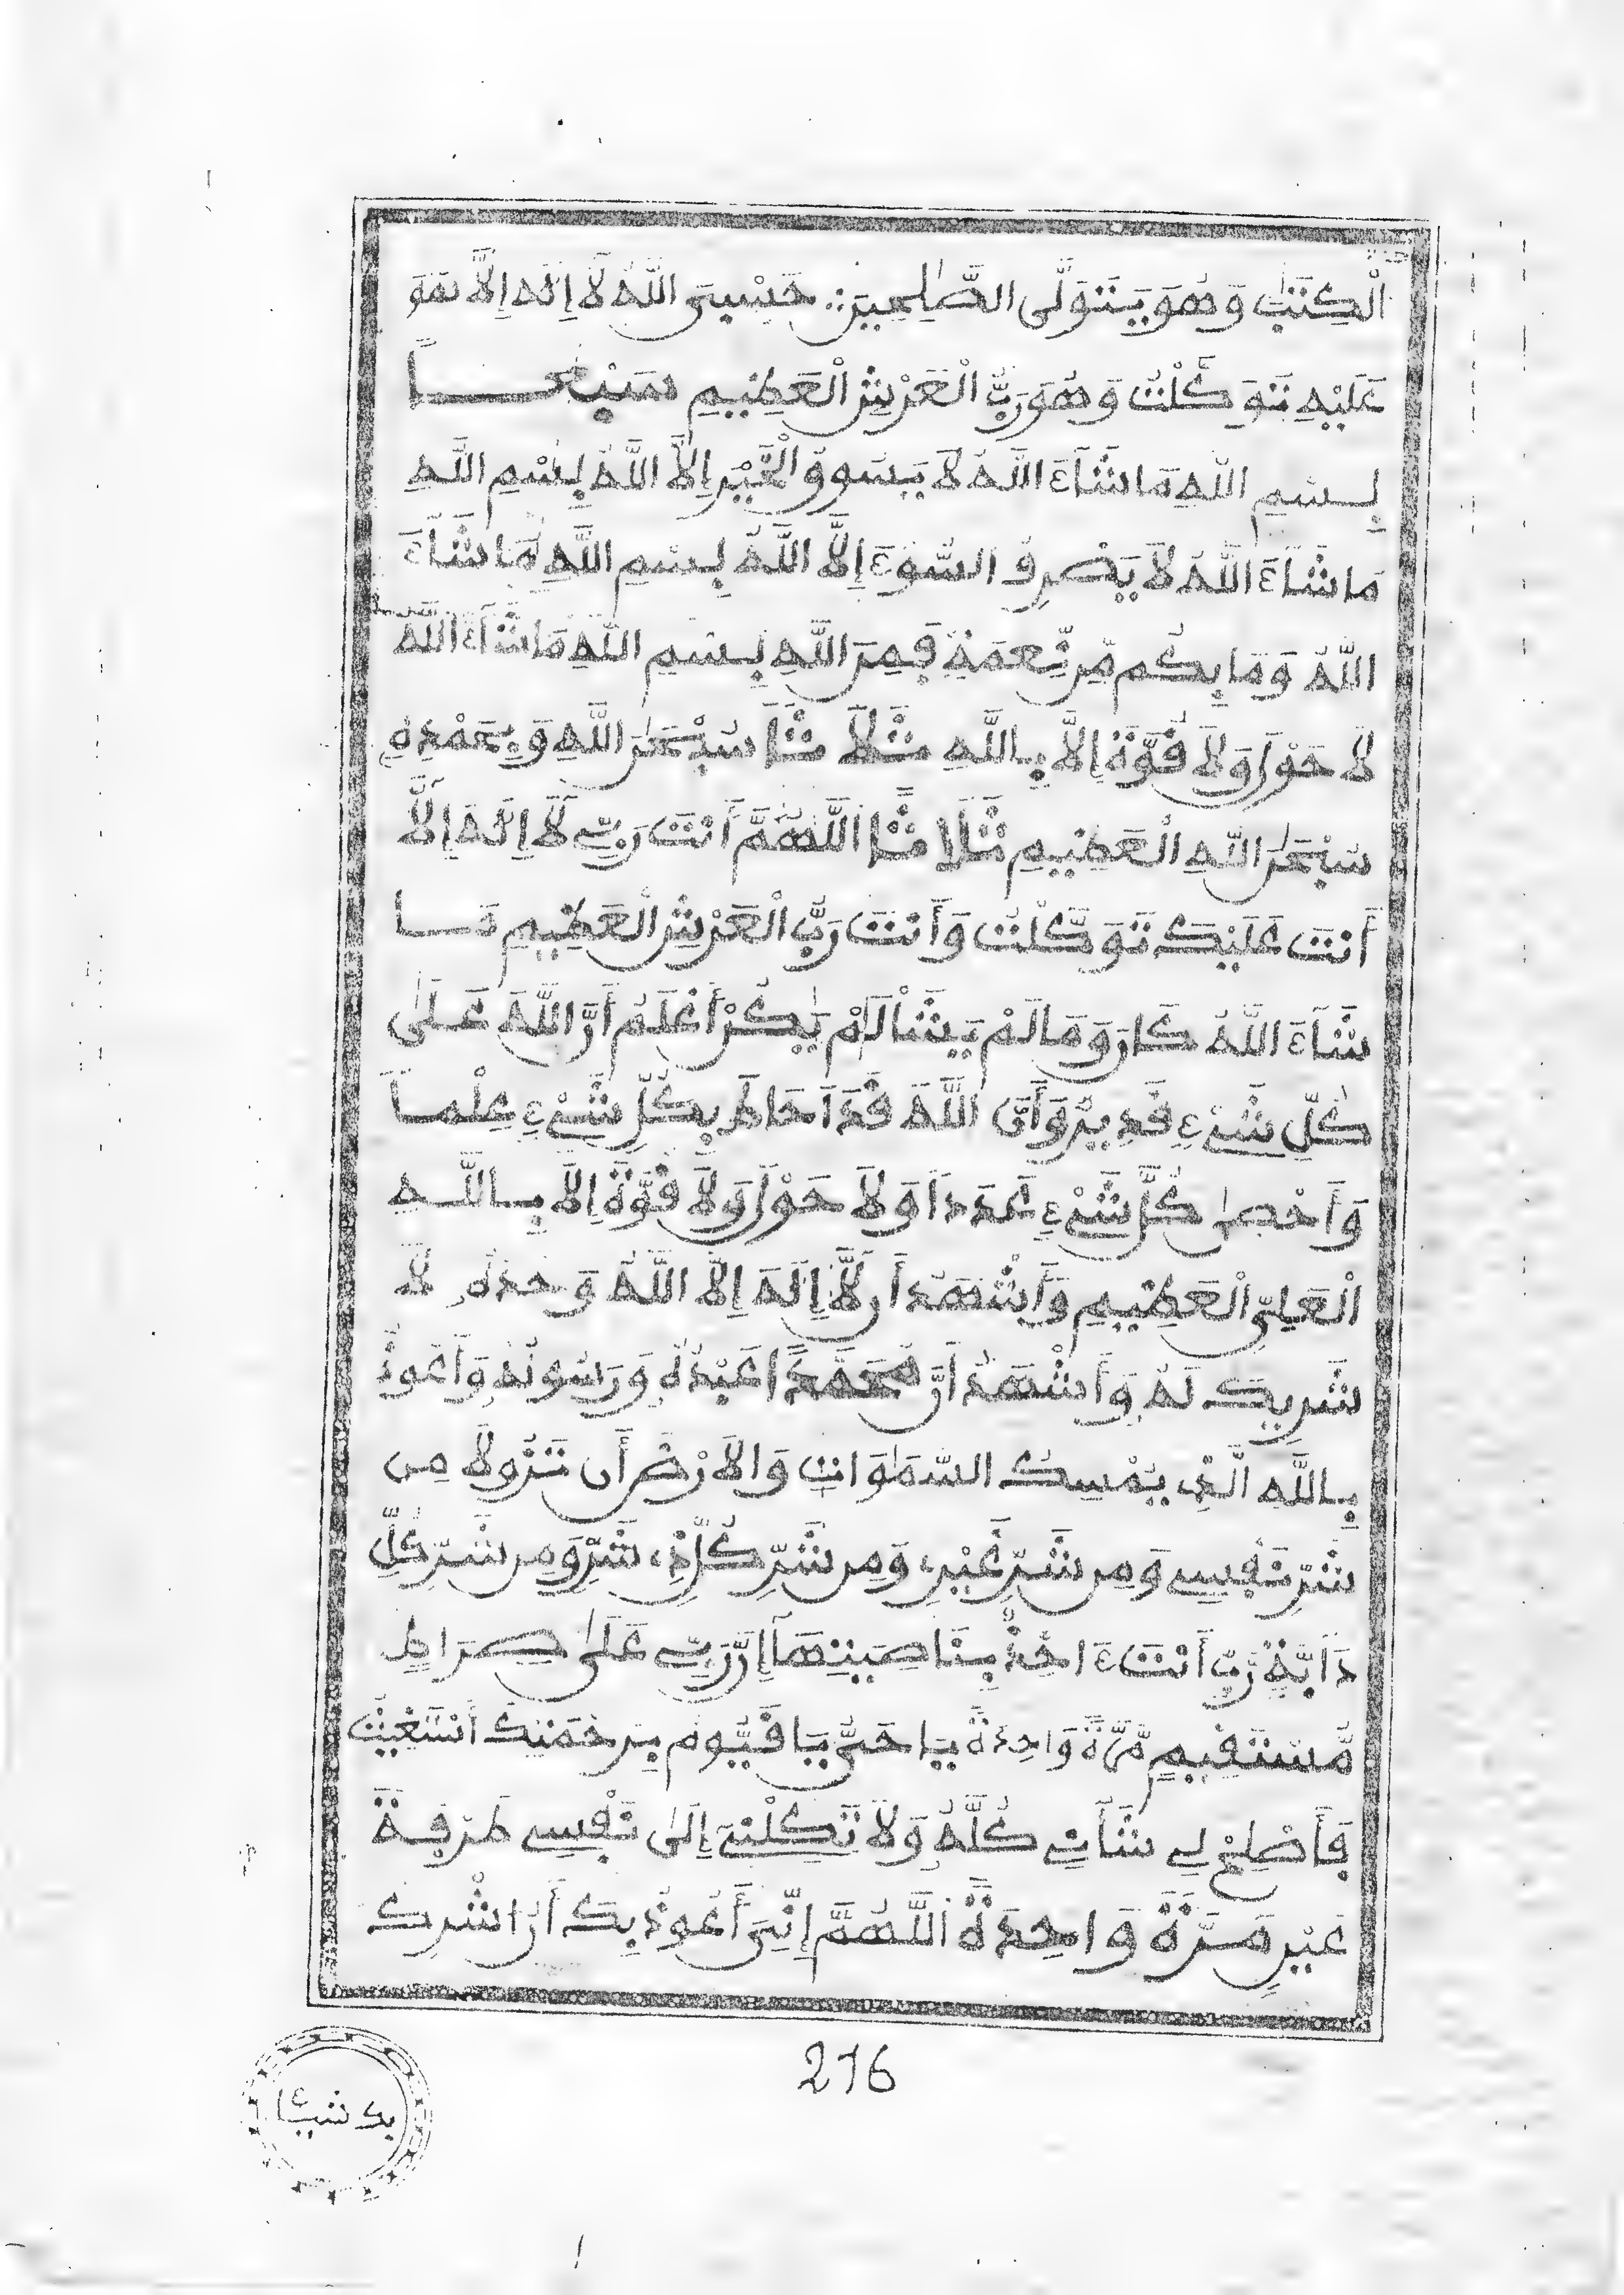 الْكِتَٰبَ وَهُوَ يَتَوَلَّى الصَّٰلِحِينَ: حَسْبِيَ اللَّهُ لَا إِلَٰهَ إِلَّا هُوَ
عَلَيْهِ تَوَكَّلْتُ وَهُوَ رَبُّ الْعَرْشِ الْعَظِيمِ سَبْعـــاً
بِسْمِ اللَّهِ مَا شَآءَ اللَّهُ لَا يَسُوقُ الْخَيْرَ إِلَّا اللَّهُ بِسْمِ اللَّهِ
مَا شَآءَ اللَّهُ لَا يَصْرِفُ السُّوٓءَ إِلَّا اللَّهُ بِسْمِ اللَّهِ مَا شَآءَ
اللَّهُ وَمَا بِكُم مِّن نِّعْمَةٍ فَمِنَ اللَّهِ بِسْمِ اللَّهِ مَا شَآءَ اللَّهُ
لَا حَوْلَ وَلَا قُوَّةَ إِلَّا بِاللَّهِ ثَلَاثاً سُبْحَٰنَ اللَّهِ وَبِحَمْدِهِ
سُبْحَٰنَ اللَّهِ الْعَظِيمِ ثَلَاثاً اللَّهُمَّ أَنْتَ رَبِّي لَا إِلَٰهَ إِلَّا
أَنْتَ عَلَيْكَ تَوَكَّلْتُ وَأَنْتَ رَبُّ الْعَرْشِ الْعَظِيمِ مَـا
شَآءَ اللَّهُ كَانَ وَمَا لَمْ يَشَأْ لَمْ يَكُنْ أَعْلَمُ أَنَّ اللَّهَ عَلَىٰ
كُلِّ شَيْءٍ قَدِيرٌ وَأَنَّ اللَّهَ قَدْ أَحَاطَ بِكُلِّ شَيْءٍ عِلْمـاً
وَأَحْصَىٰ كُلَّ شَيْءٍ عَدَداً وَلَا حَوْلَ وَلَا قُوَّةَ إِلَّا بِاللَّـهِ
الْعَلِيِّ الْعَظِيمِ وَأَشْهَدُ أَن لَّا إِلَٰهَ إِلَّا اللَّهُ وَحْدَهُ لَا
شَرِيكَ لَهُ وَأَشْهَدُ أَنَّ مُحَمَّداً عَبْدُهُ وَرَسُولُهُ وَأَعُوذُ
بِاللَّهِ الَّذِي يُمْسِكُ السَّمَٰوَاتِ وَالْأَرْضَ أَن تَزُولَا مِن
شَرِّ نَفْسِي وَمِن شَرِّ غَيْرِي وَمِن شَرِّ كُلِّ ذِي شَرٍّ وَمِن شَرِّ كُلِّ
دَآبَّةٍ رَبِّي أَنْتَ ءَاخِذٌ بِنَاصِيَتِهَآ إِنَّ رَبِّي عَلَىٰ صِرَاطٍ
مُّسْتَقِيمٍ مَّرَّةً وَاحِدَةً يَا حَيُّ يَا قَيُّومُ بِرَحْمَتِكَ أَسْتَغِيثُ
فَأَصْلِحْ لِي شَأْنِي كُلَّهُ وَلَا تَكِلْنِي إِلَىٰ نَفْسِي طَرْفَـةَ
عَيْنٍ مَرَّةً وَاحِدَةً اللَّهُمَّ إِنِّي أَعُوذُ بِكَ أَنْ أُشْرِكَ
276